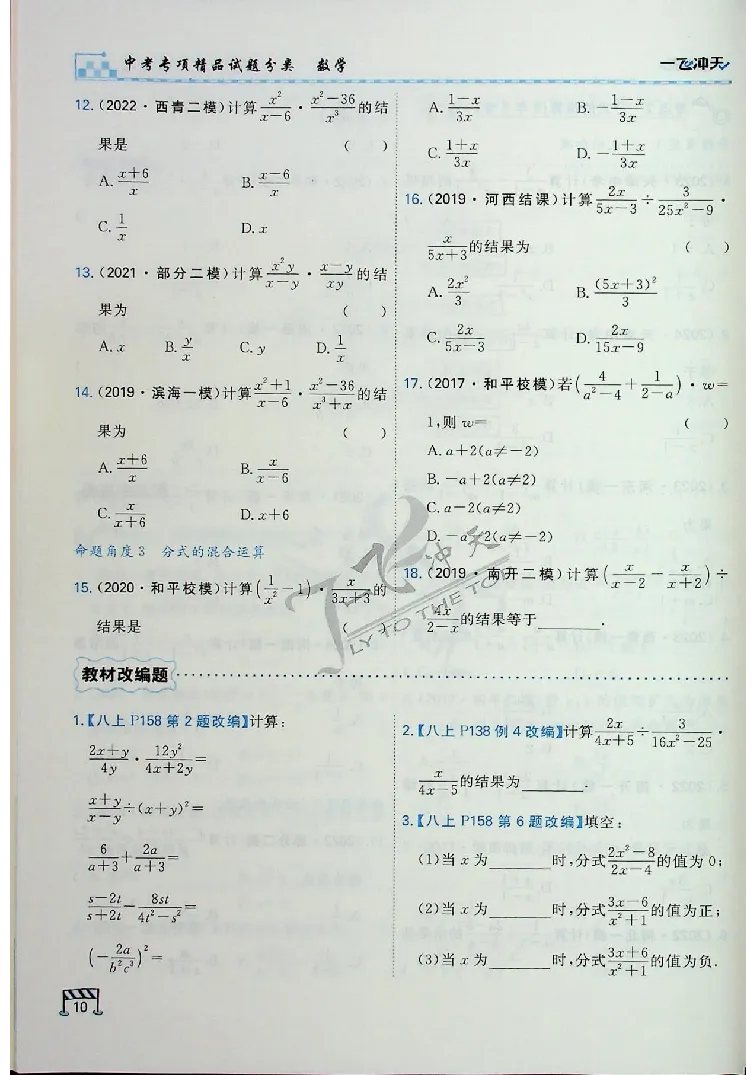 中考专项精品试题分类 数学
一飞冲天
12.(2022·西青二模)计算$\frac{x^2}{x-6}\cdot\frac{x^2-36}{x^3}$的结
果是 ( )
A.$\frac{x+6}{x}$ B.$\frac{x-6}{x}$
C.$\frac{1}{x}$ D.x
13.(2021·部分二模)计算$\frac{x^2y}{x-y}\cdot\frac{x-y}{xy}$的结
果为 ( )
A.x B.$\frac{y}{x}$ C.y D.$\frac{1}{x}$
14.(2019·滨海一模)计算$\frac{x^2+1}{x-6}\cdot\frac{x^2-36}{x^3+x}$的结
果为 ( )
A.$\frac{x+6}{x}$ B.$\frac{x}{x-6}$
C.$\frac{x}{x+6}$ D.x+6
命题角度3 分式的混合运算
15.(2020·和平校模)计算$\left(\frac{1}{x^2}-1\right)\cdot\frac{x}{3x+3}$的
结果是 ( )
A.$\frac{1-x}{3x}$ B.$-\frac{1-x}{3x}$
C.$\frac{1+x}{3x}$ D.$-\frac{1+x}{3x}$
16.(2019·河西结课)计算$\frac{2x}{5x-3}\div\frac{3}{25x^2-9}\cdot$
$\frac{x}{5x+3}$的结果为 ( )
A.$\frac{2x^2}{3}$ B.$\frac{(5x+3)^2}{3}$
C.$\frac{2x}{5x-3}$ D.$\frac{2x}{15x-9}$
17.(2017·和平校模)若$\left(\frac{4}{a^2-4}+\frac{1}{2-a}\right)\cdot w=$
1,则w= ( )
A.a+2(a≠-2)
B.-a+2(a≠2)
C.a-2(a≠2)
D.-a-2(a≠-2)
18.(2019·南开二模)计算$\left(\frac{x}{x-2}-\frac{x}{x+2}\right)\div$
$\frac{4x}{2-x}$的结果等于______.
飞冲天
FLY TO THE TOP
教材改编题
1.【八上P158第2题改编】计算:
$\frac{2x+y}{4y}\cdot\frac{12y^2}{4x+2y}=$
$\frac{x+y}{x-y}\div(x+y)^2=$
$\frac{6}{a+3}+\frac{2a}{a+3}=$
$\frac{s-2t}{s+2t}-\frac{8st}{4t^2-s^2}=$
$\left(-\frac{2a}{b^2c^3}\right)^2=$
2.【八上P138例4改编】计算$\frac{2x}{4x+5}\div\frac{3}{16x^2-25}\cdot$
$\frac{x}{4x-5}$的结果为______.
3.【八上P158第6题改编】填空:
(1)当x为______时,分式$\frac{2x^2-8}{2x-4}$的值为0;
(2)当x为______时,分式$\frac{3x-6}{x^2+1}$的值为正;
(3)当x为______时,分式$\frac{3x+6}{x^2+1}$的值为负.
10